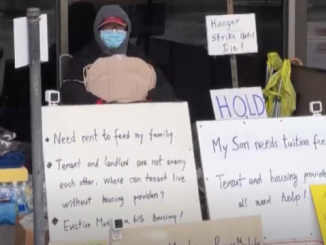 Hunger
Strike Until
Die!
HOLD
• Need rent to feed my family.
• Tenant and landlord are not enemy
each other. Where can tenant live
without housing providers?
• Eviction
kills housing!
My Son needs tuition fee
Tenant and housing provider
all need help!